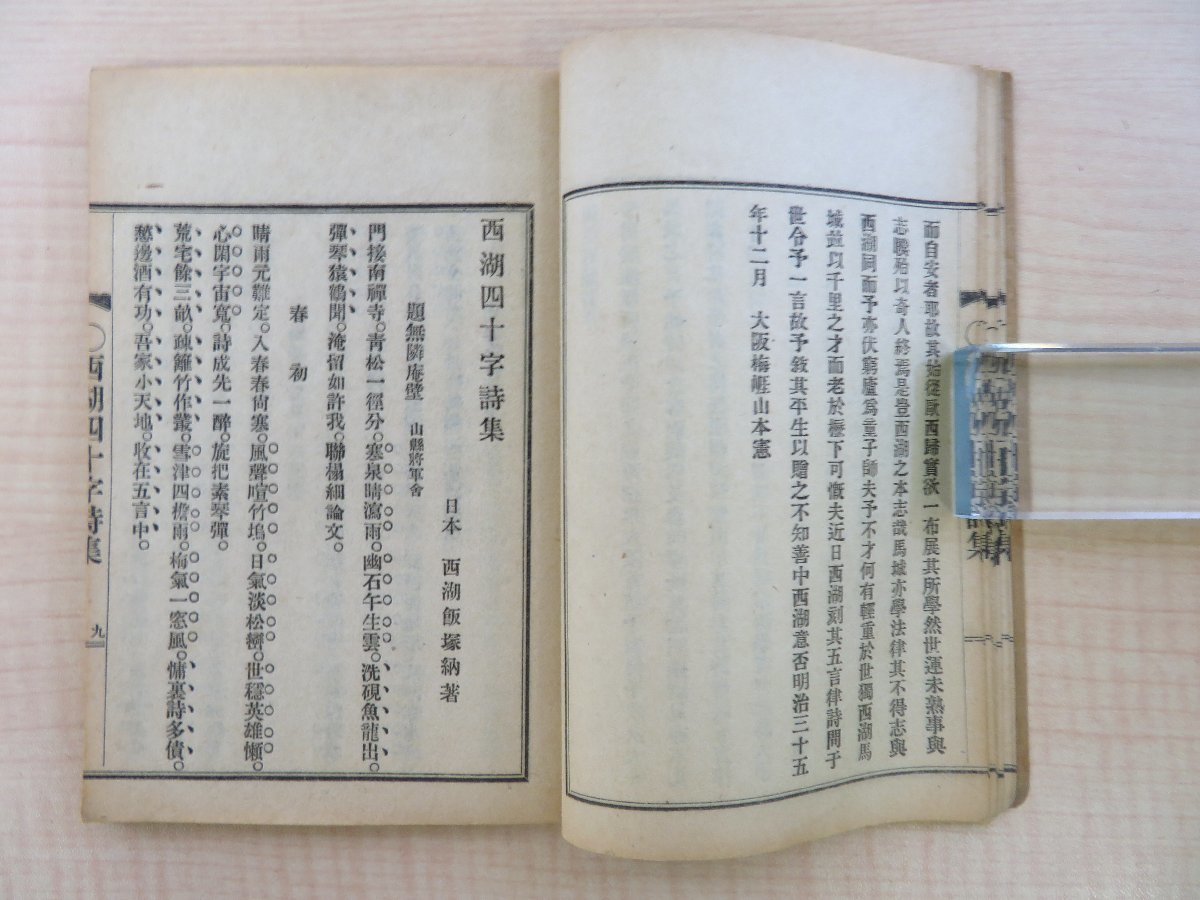 而自安者耶故其始從歐西歸實欲一布展其所學然世運未熟事與
志睽殆以奇人終焉是豈西湖之本志哉馬城亦學法律其不得志與
西湖同而予亦伏窮廬爲童子師夫予不才何有輕重於世獨西湖馬
城並以千里之才而老於櫪下可慨夫近日西湖刻其五言律詩問于
世令予一言故予敘其平生以贈之不知善中西湖意否明治三十五
年十二月　大阪梅崕山本憲
西湖四十字詩集
日本　西湖飯塚納著
題無隣庵壁　山縣將軍舍
門接南禪寺。青松一徑分。寒泉晴瀉雨。幽石午生雲。洗硯魚龍出。
彈琴猿鶴聞。淹留如許我。聯榻細論文。
春　初
晴雨元難定。入春春尙寒。風聲喧竹塢。日氣淡松巒。世穩英雄懶。
心閑宇宙寬。詩成先一醉。旋把素琴彈。
荒宅餘三畝。疎籬竹作叢。雪津四檐雨。梅氣一窓風。慵裏詩多債。
愁邊酒有功。吾家小天地。收在五言中。
〇西湖四十字詩集
九